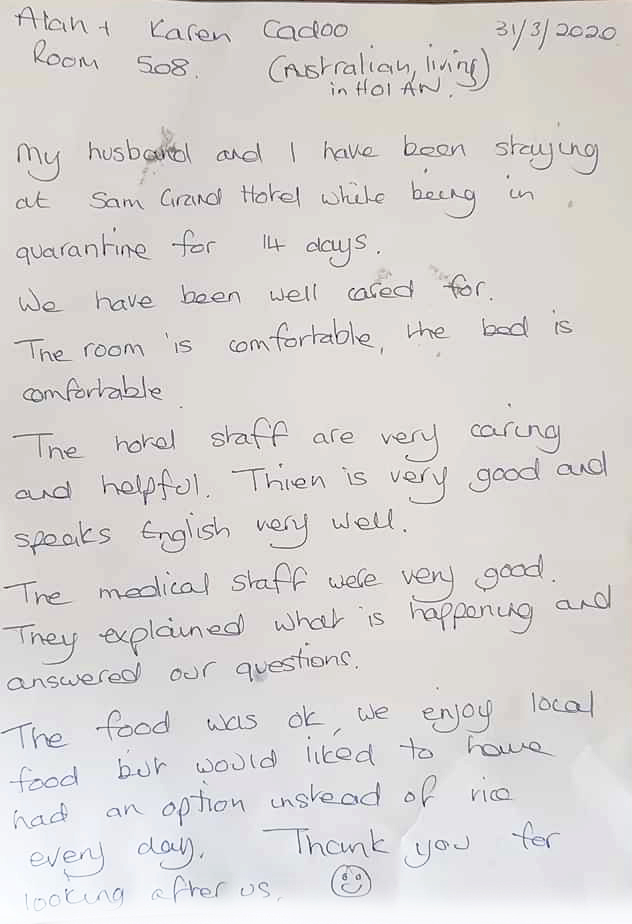 Alan + Karen Cadoo 31/3/2020
Room 508. (Australian, living)
in HOI AN.
My husband and I have been staying
at Sam Grand Hotel while being in
quarantine for 14 days.
We have been well cared for.
The room is comfortable, the bed is
comfortable.
The hotel staff are very caring
and helpful. Thien is very good and
speaks English very well.
The medical staff were very good.
They explained what is happening and
answered our questions.
The food was ok, we enjoy local
food but would liked to have
had an option instead of rice
every day. Thank you for
looking after us.